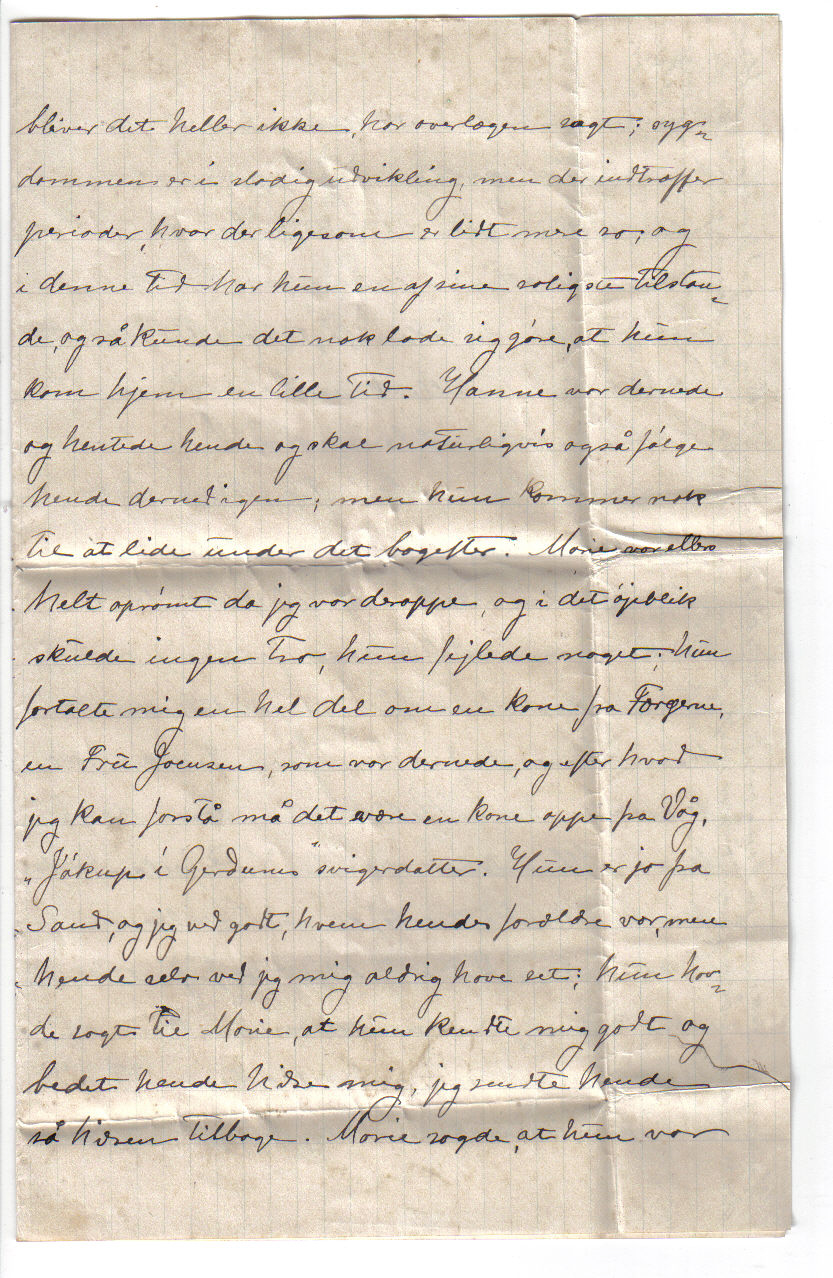 bliver det heller ikke, har overlægen sagt; syg-
dommen er i stadig udvikling, men der indtræffer
perioder, hvor der ligesom er lidt mere ro, og
i denne tid har hun en af sine roligste tilstan-
de, og så kunde det nok lade sig gøre, at hun
kom hjem en lille tid. Hanne var dernede
og hentede hende og skal naturligvis også følge
hende derned igen; men hun kommer nok
til at lide under det bagefter. Marie var ellers
helt oprømt da jeg var deroppe, og i det øjeblik
skulde ingen tro, hun fejlede noget; hun
fortalte mig en hel del om en kone fra Færøerne,
en Fru Joensen, som var dernede, og efter hvad
jeg kan forstå må det være en kone oppe fra Våg,
"Jákup í Gerðunum" svigerdatter. Hun er jo fra
Sand, og jeg ved godt, hvem hendes forældre var, men
hende selv ved jeg mig aldrig have set; hun hav-
de sagt til Marie, at hun kendte mig godt og
bedet hende hilse mig, jeg sendte hende
så hilsen tilbage. Marie sagde, at hun var